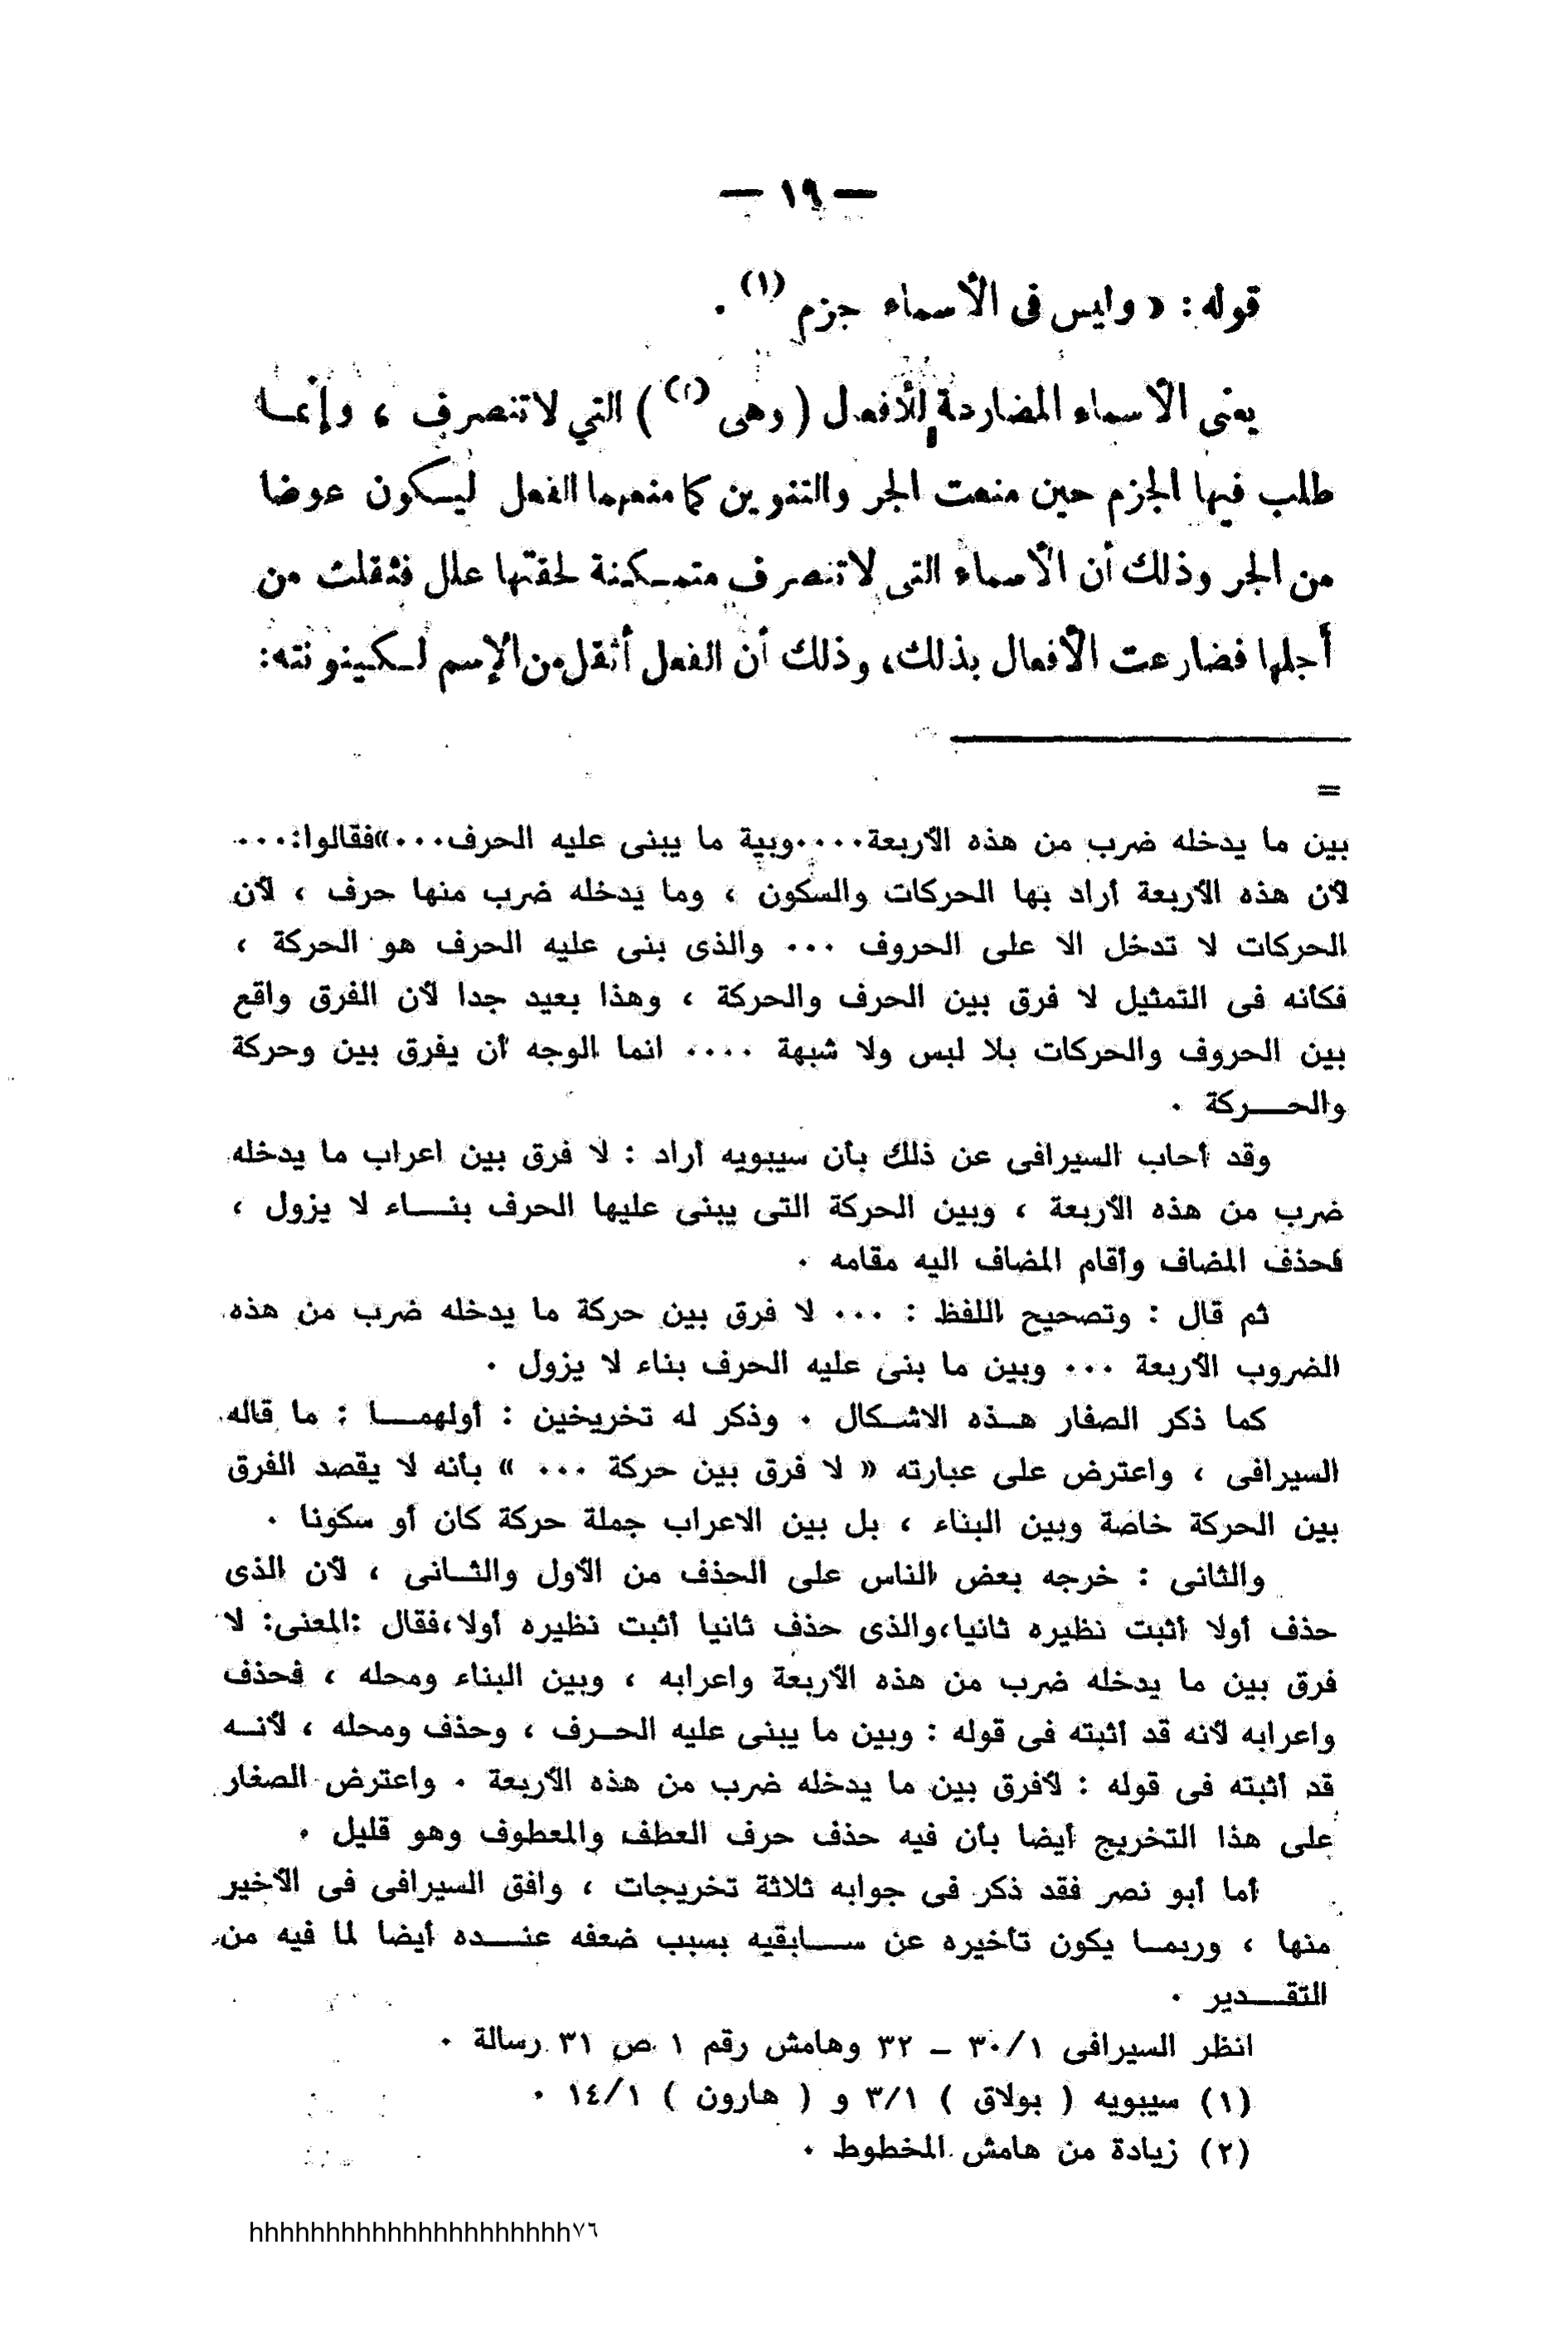 — ١٩ —
قوله : « وليس فى الأسماء جزم (١) .
يعنى الأسماء المضارعة للأفعال ( وهى (٢) ) التي لاتنصرف ، وإنما
طلب فيها الجزم حين منعت الجر والتنوين كما منعهما الفعل ليكون عوضا
من الجر وذلك أن الأسماء التى لاتنصرف متمكنة لحقتها علل فثقلت من
أجلها فضارعت الأفعال بذلك، وذلك أن الفعل أثقل من الإسم لكينونته:
=
بين ما يدخله ضرب من هذه الأربعة....وبية ما يبنى عليه الحرف...»فقالوا:...
لأن هذه الأربعة أراد بها الحركات والسكون ، وما يدخله ضرب منها حرف ، لأن
الحركات لا تدخل الا على الحروف ... والذى بنى عليه الحرف هو الحركة ،
فكأنه فى التمثيل لا فرق بين الحرف والحركة ، وهذا بعيد جدا لأن الفرق واقع
بين الحروف والحركات بلا لبس ولا شبهة .... انما الوجه أن يفرق بين وحركة
والحركة .
وقد أحاب السيرافى عن ذلك بأن سيبويه أراد : لا فرق بين اعراب ما يدخله
ضرب من هذه الأربعة ، وبين الحركة التى يبنى عليها الحرف بناء لا يزول ،
فحذف المضاف وأقام المضاف اليه مقامه .
ثم قال : وتصحيح اللفظ : ... لا فرق بين حركة ما يدخله ضرب من هذه
الضروب الأربعة ... وبين ما بنى عليه الحرف بناء لا يزول .
كما ذكر الصفار هذه الاشكال . وذكر له تخريخين : أولهما : ما قاله
السيرافى ، واعترض على عبارته « لا فرق بين حركة ... » بأنه لا يقصد الفرق
بين الحركة خاصة وبين البناء ، بل بين الاعراب جملة حركة كان أو سكونا .
والثانى : خرجه بعض الناس على الحذف من الأول والثانى ، لأن الذى
حذف أولا أثبت نظيره ثانيا،والذى حذف ثانيا أثبت نظيره أولا،فقال :المعنى: لا
فرق بين ما يدخله ضرب من هذه الأربعة واعرابه ، وبين البناء ومحله ، فحذف
واعرابه لأنه قد أثبته فى قوله : وبين ما يبنى عليه الحرف ، وحذف ومحله ، لأنه
قد أثبته فى قوله : لأفرق بين ما يدخله ضرب من هذه الأربعة . واعترض الصفار
على هذا التخريج أيضا بأن فيه حذف حرف العطف والمعطوف وهو قليل .
أما أبو نصر فقد ذكر فى جوابه ثلاثة تخريجات ، وافق السيرافى فى الأخير
منها ، وربما يكون تأخيره عن سابقيه بسبب ضعفه عنده أيضا لما فيه من
التقدير .
انظر السيرافى ٣٠/١ – ٣٢ وهامش رقم ١ ص ٣١ رسالة .
(١) سيبويه ( بولاق ) ٣/١ و ( هارون ) ١٤/١ .
(٢) زيادة من هامش المخطوط .
hhhhhhhhhhhhhhhhhhhhh٧٦